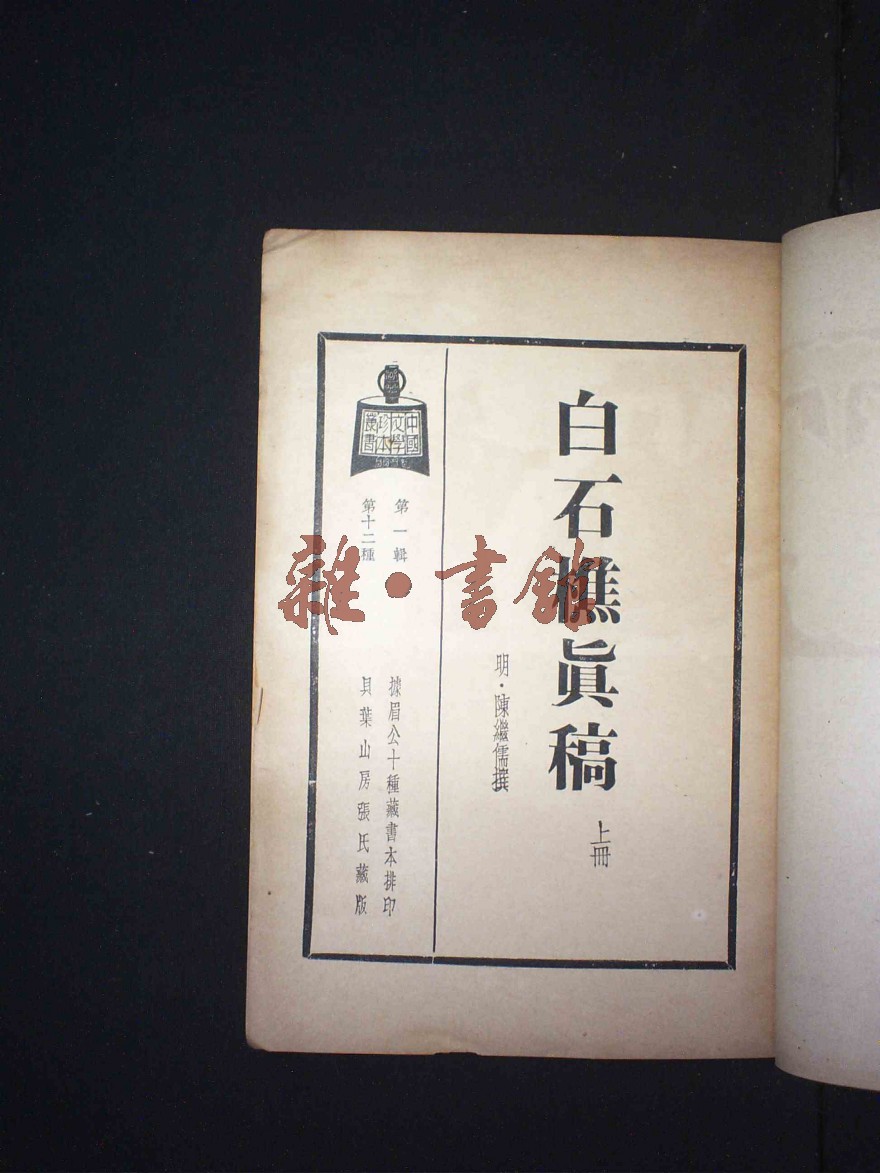 白石樵眞稿
上冊
明·陳繼儒撰
中國文學珍本叢書
第一輯
第十二種
據眉公十種藏書本排印
貝葉山房張氏藏版
雜·書館